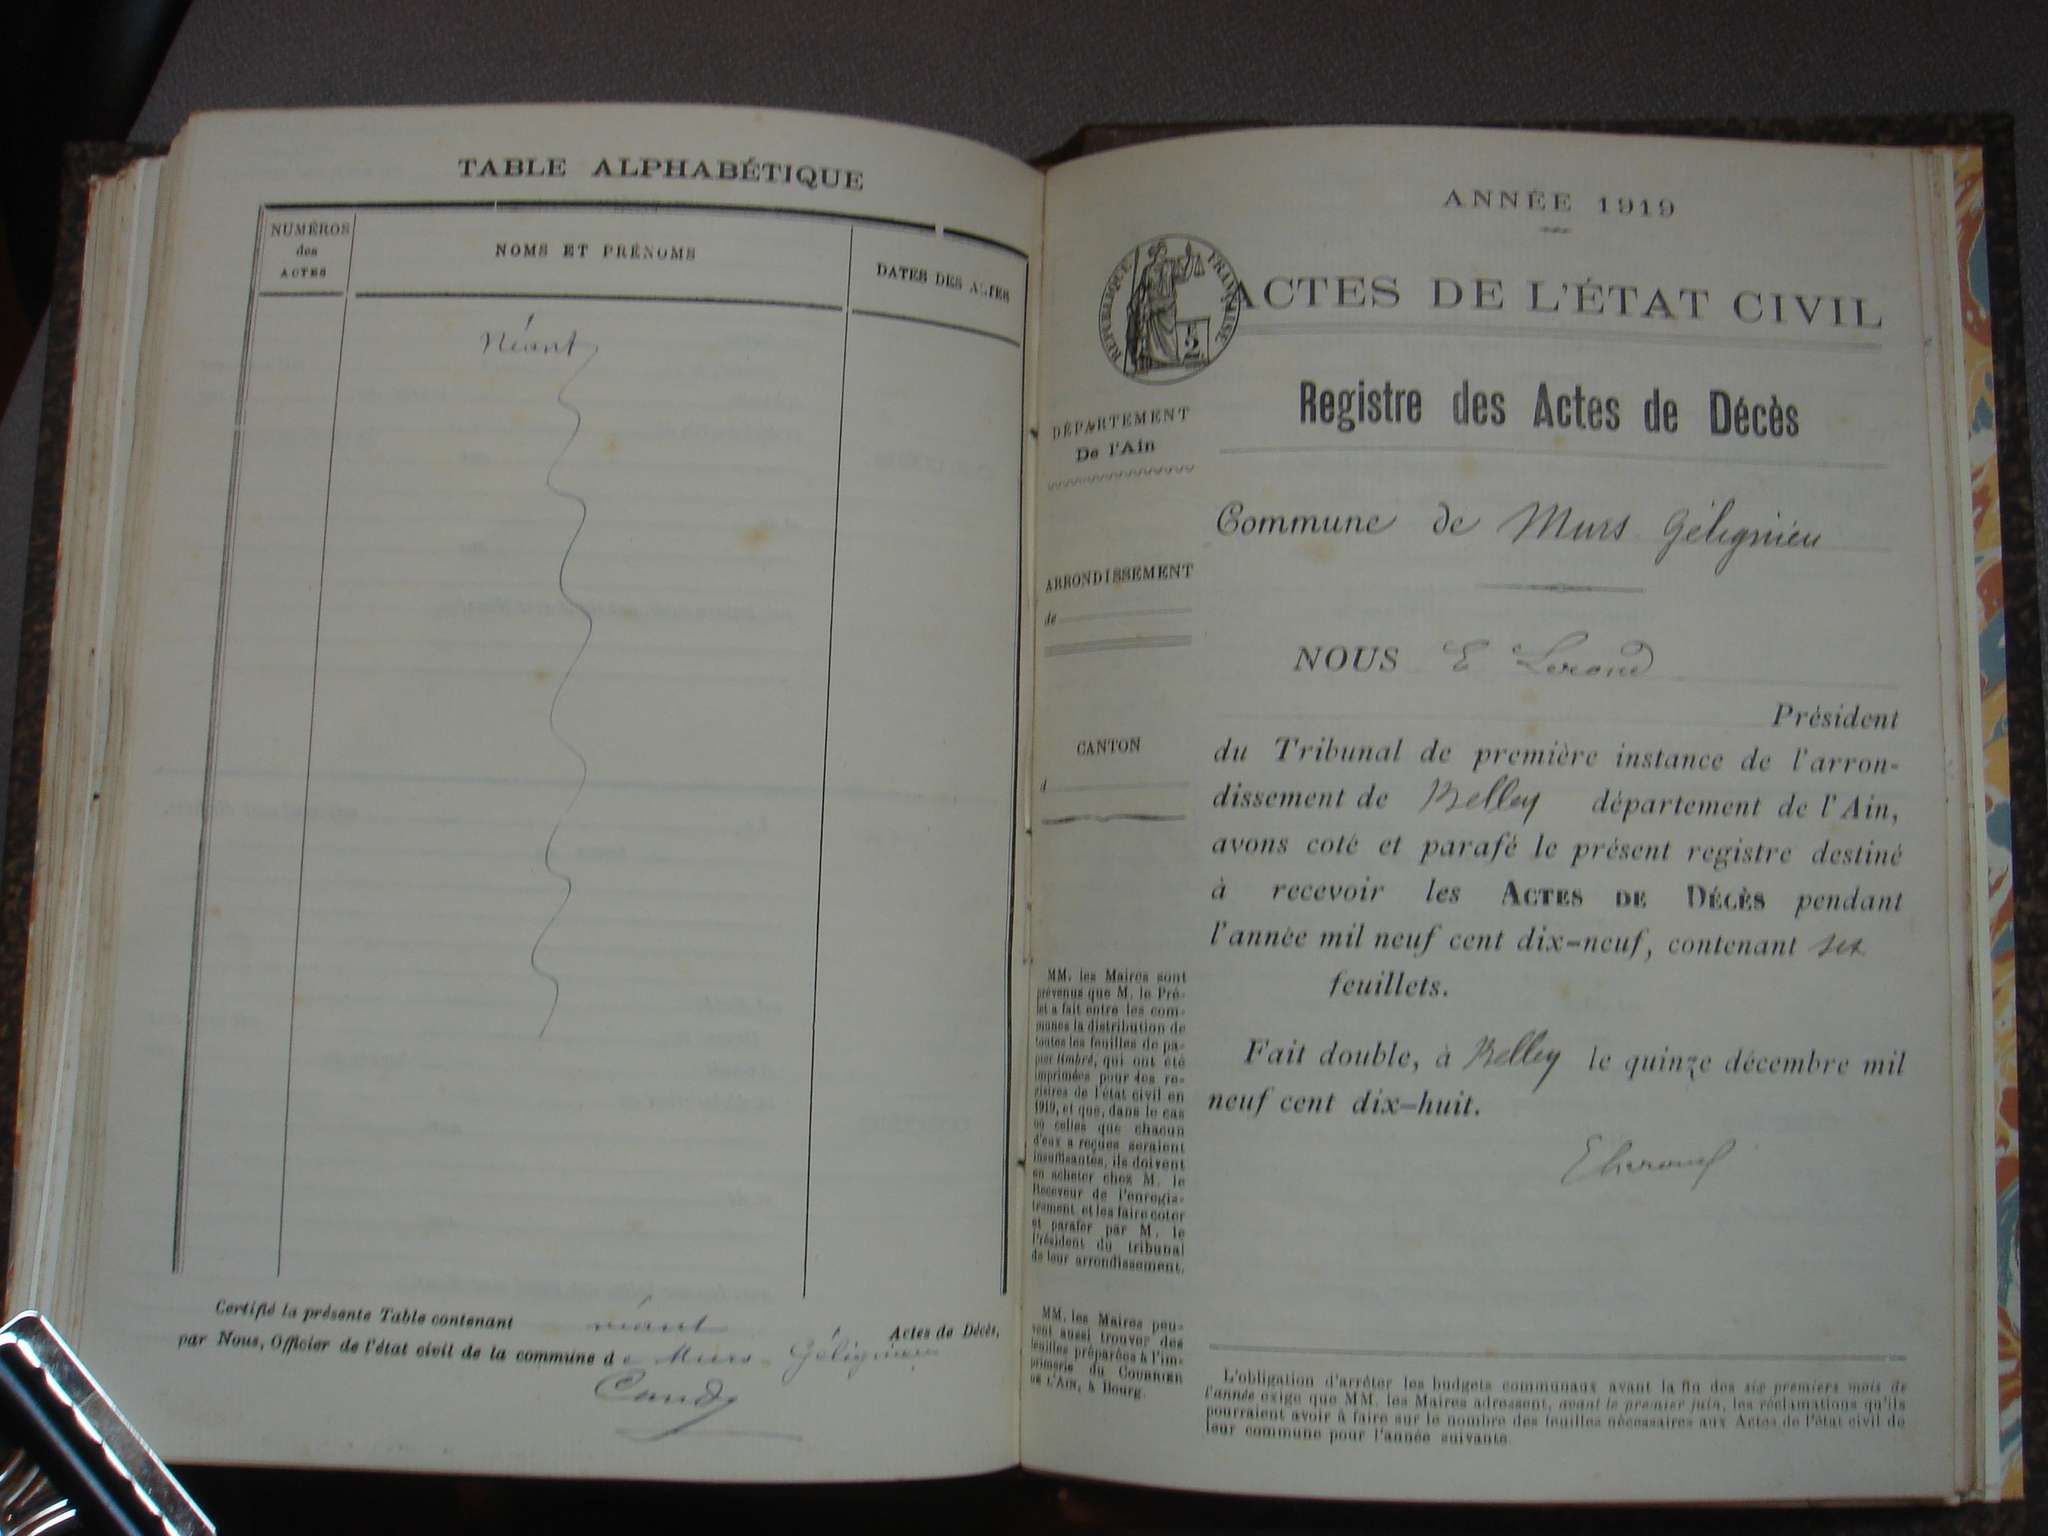 TABLE ALPHABÉTIQUE
NUMÉROS
des
ACTES
NOMS ET PRÉNOMS
DATES DES ACTES
Néant
Certifié la présente Table contenant néant Actes de Décès,
par Nous, Officier de l'état civil de la commune de Murs Gélignieu
ANNÉE 1919
RÉPUBLIQUE FRANÇAISE
5
2
ACTES DE L'ÉTAT CIVIL
Registre des Actes de Décès
DÉPARTEMENT
De l'Ain
Commune de Murs Gélignieu
ARRONDISSEMENT
de
NOUS E
Président
du Tribunal de première instance de l'arron-
CANTON
d
dissement de Belley département de l'Ain,
avons coté et parafé le présent registre destiné
à recevoir les ACTES DE DÉCÈS pendant
l'année mil neuf cent dix-neuf, contenant six
feuillets.
Fait double, à Belley le quinze décembre mil
neuf cent dix-huit.
MM. les Maires sont
prévenus que M. le Pré-
fet a fait entre les com-
munes la distribution de
toutes les feuilles de pa-
pier timbré, qui ont été
imprimées pour les re-
gistres de l'état civil en
1919, et que, dans le cas
où celles que chacun
d'eux a reçues seraient
insuffisantes, ils doivent
en acheter chez M. le
Receveur de l'enregis-
trement et les faire coter
et parafer par M. le
Président du tribunal
de leur arrondissement.
MM. les Maires peu-
vent aussi trouver des
feuilles préparées à l'im-
primerie du COURRIER
DE L'AIN, à Bourg.
L'obligation d'arrêter les budgets communaux avant la fin des six premiers mois de
l'année exige que MM. les Maires adressent, avant le premier juin, les réclamations qu'ils
pourraient avoir à faire sur le nombre des feuilles nécessaires aux Actes de l'état civil de
leur commune pour l'année suivante.